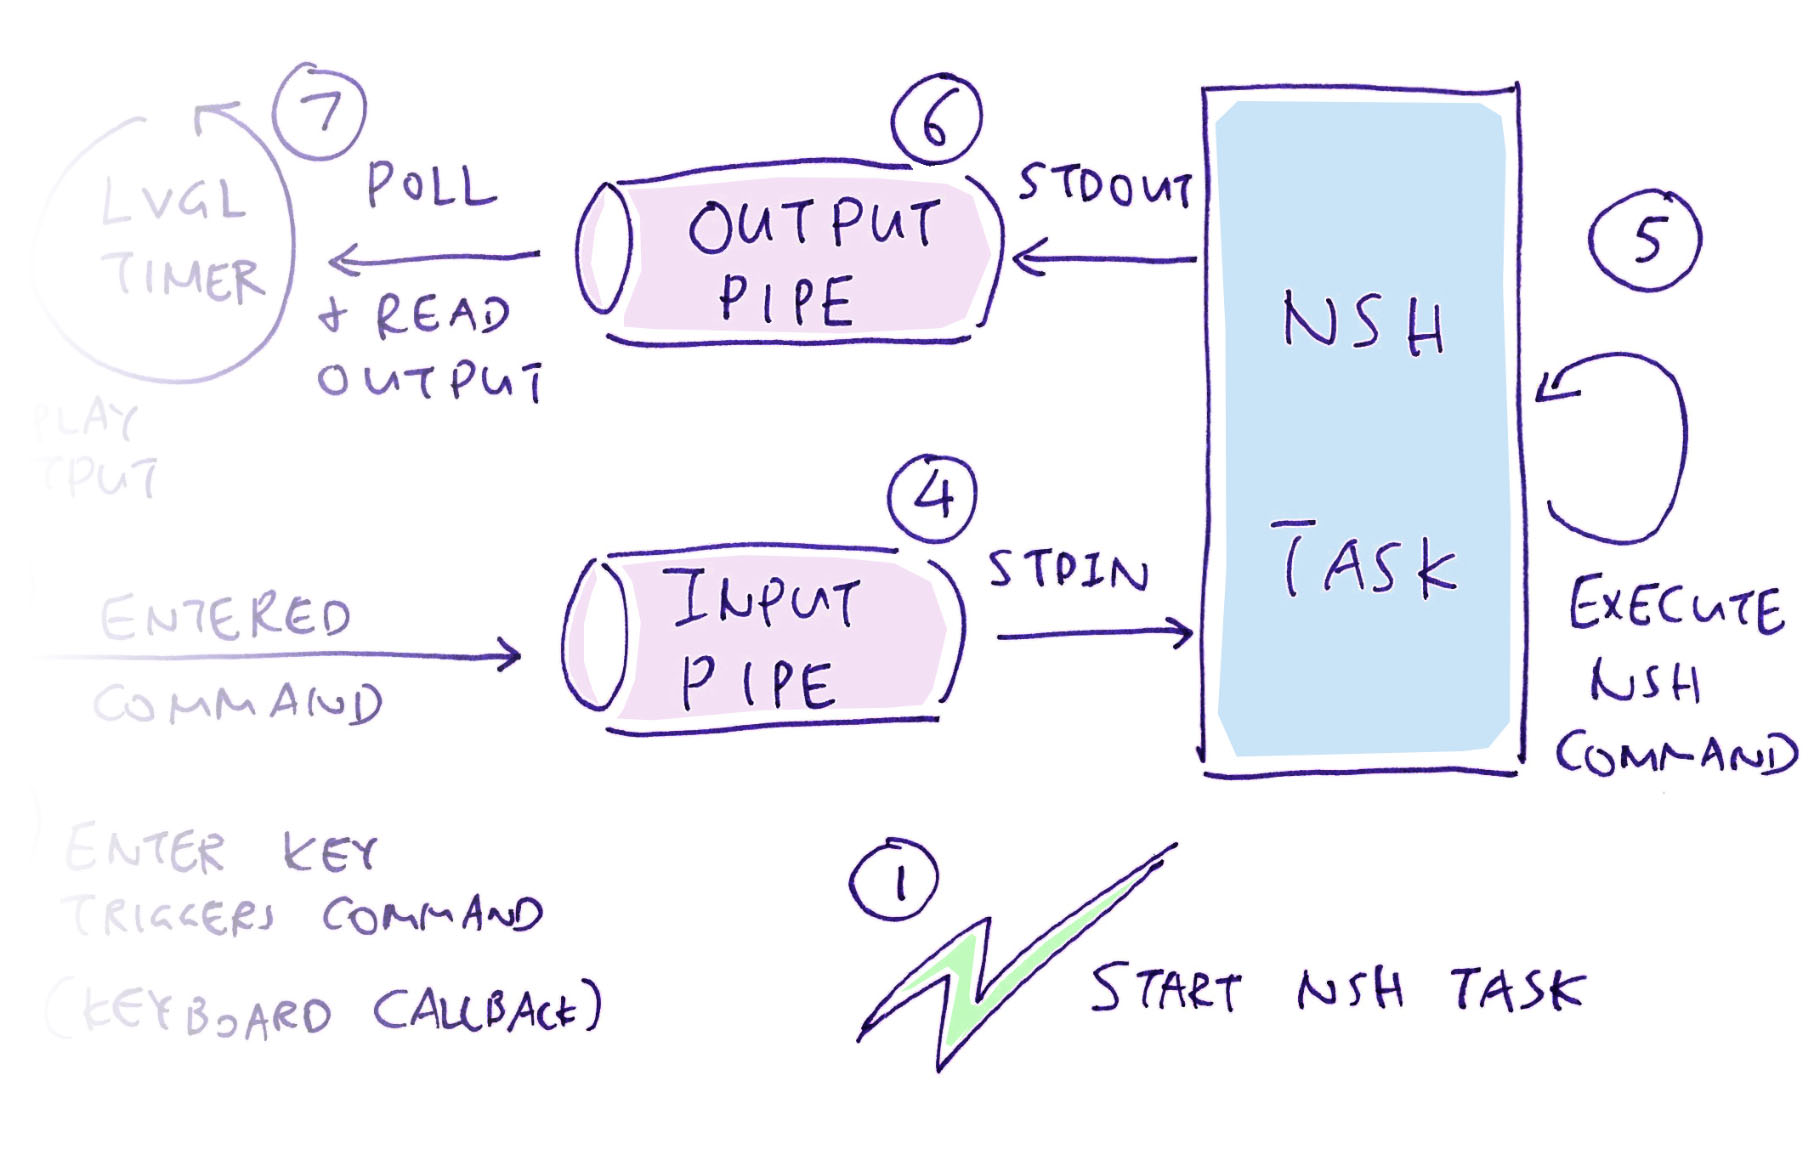 7
LVGL
TIMER
POLL
+ READ
OUTPUT
6
OUTPUT
PIPE
STDOUT
NSH
TASK
5
EXECUTE
NSH
COMMAND
PLAY
TPUT
4
INPUT
PIPE
STDIN
ENTERED
COMMAND
ENTER KEY
TRIGGERS COMMAND
(KEYBOARD CALLBACK)
1
START NSH TASK